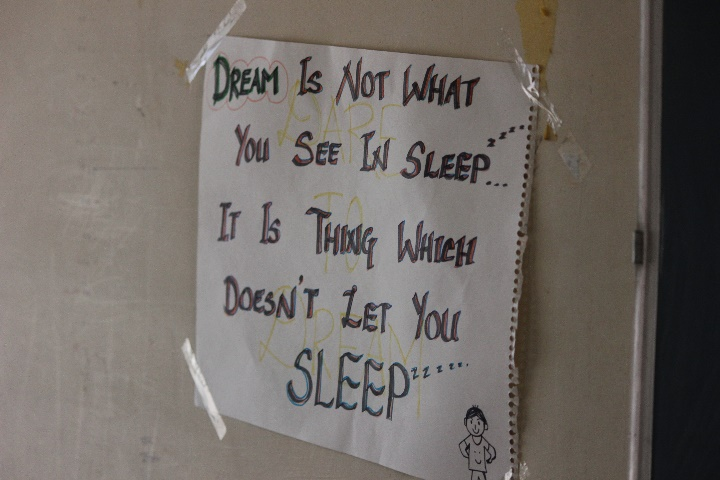 DREAM IS NOT WHAT
YOU SEE IN SLEEP...zzzz
IT IS THING WHICH
DOESN'T LET YOU
SLEEPzzzzz..
DARE
TO
DREAM